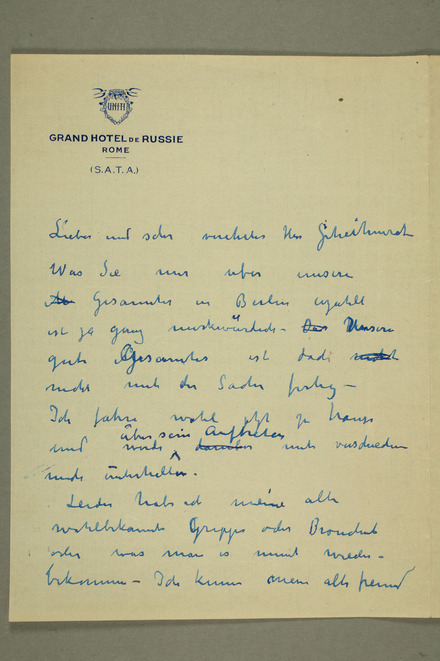 GRAND HOTEL DE RUSSIE
ROME
(S.A.T.A.)
Lieber und sehr verehrter Herr Geheimrat
Was Sie mir über unsere
Gesandter in Berlin erzählt
ist ja ganz merkwürdig - Unser
gute Gesandter ist doch
nicht mit der Sache fertig -
Ich fahre wohl jetzt zu Hause
und werde über sein Auftreten mich verschiedene
unterhalten.
Leider habe ich meine alte
wohlbekannte Grippe oder Bronchit
oder was man es nennt wieder-
bekommen - Ich kenne mein alte Freund